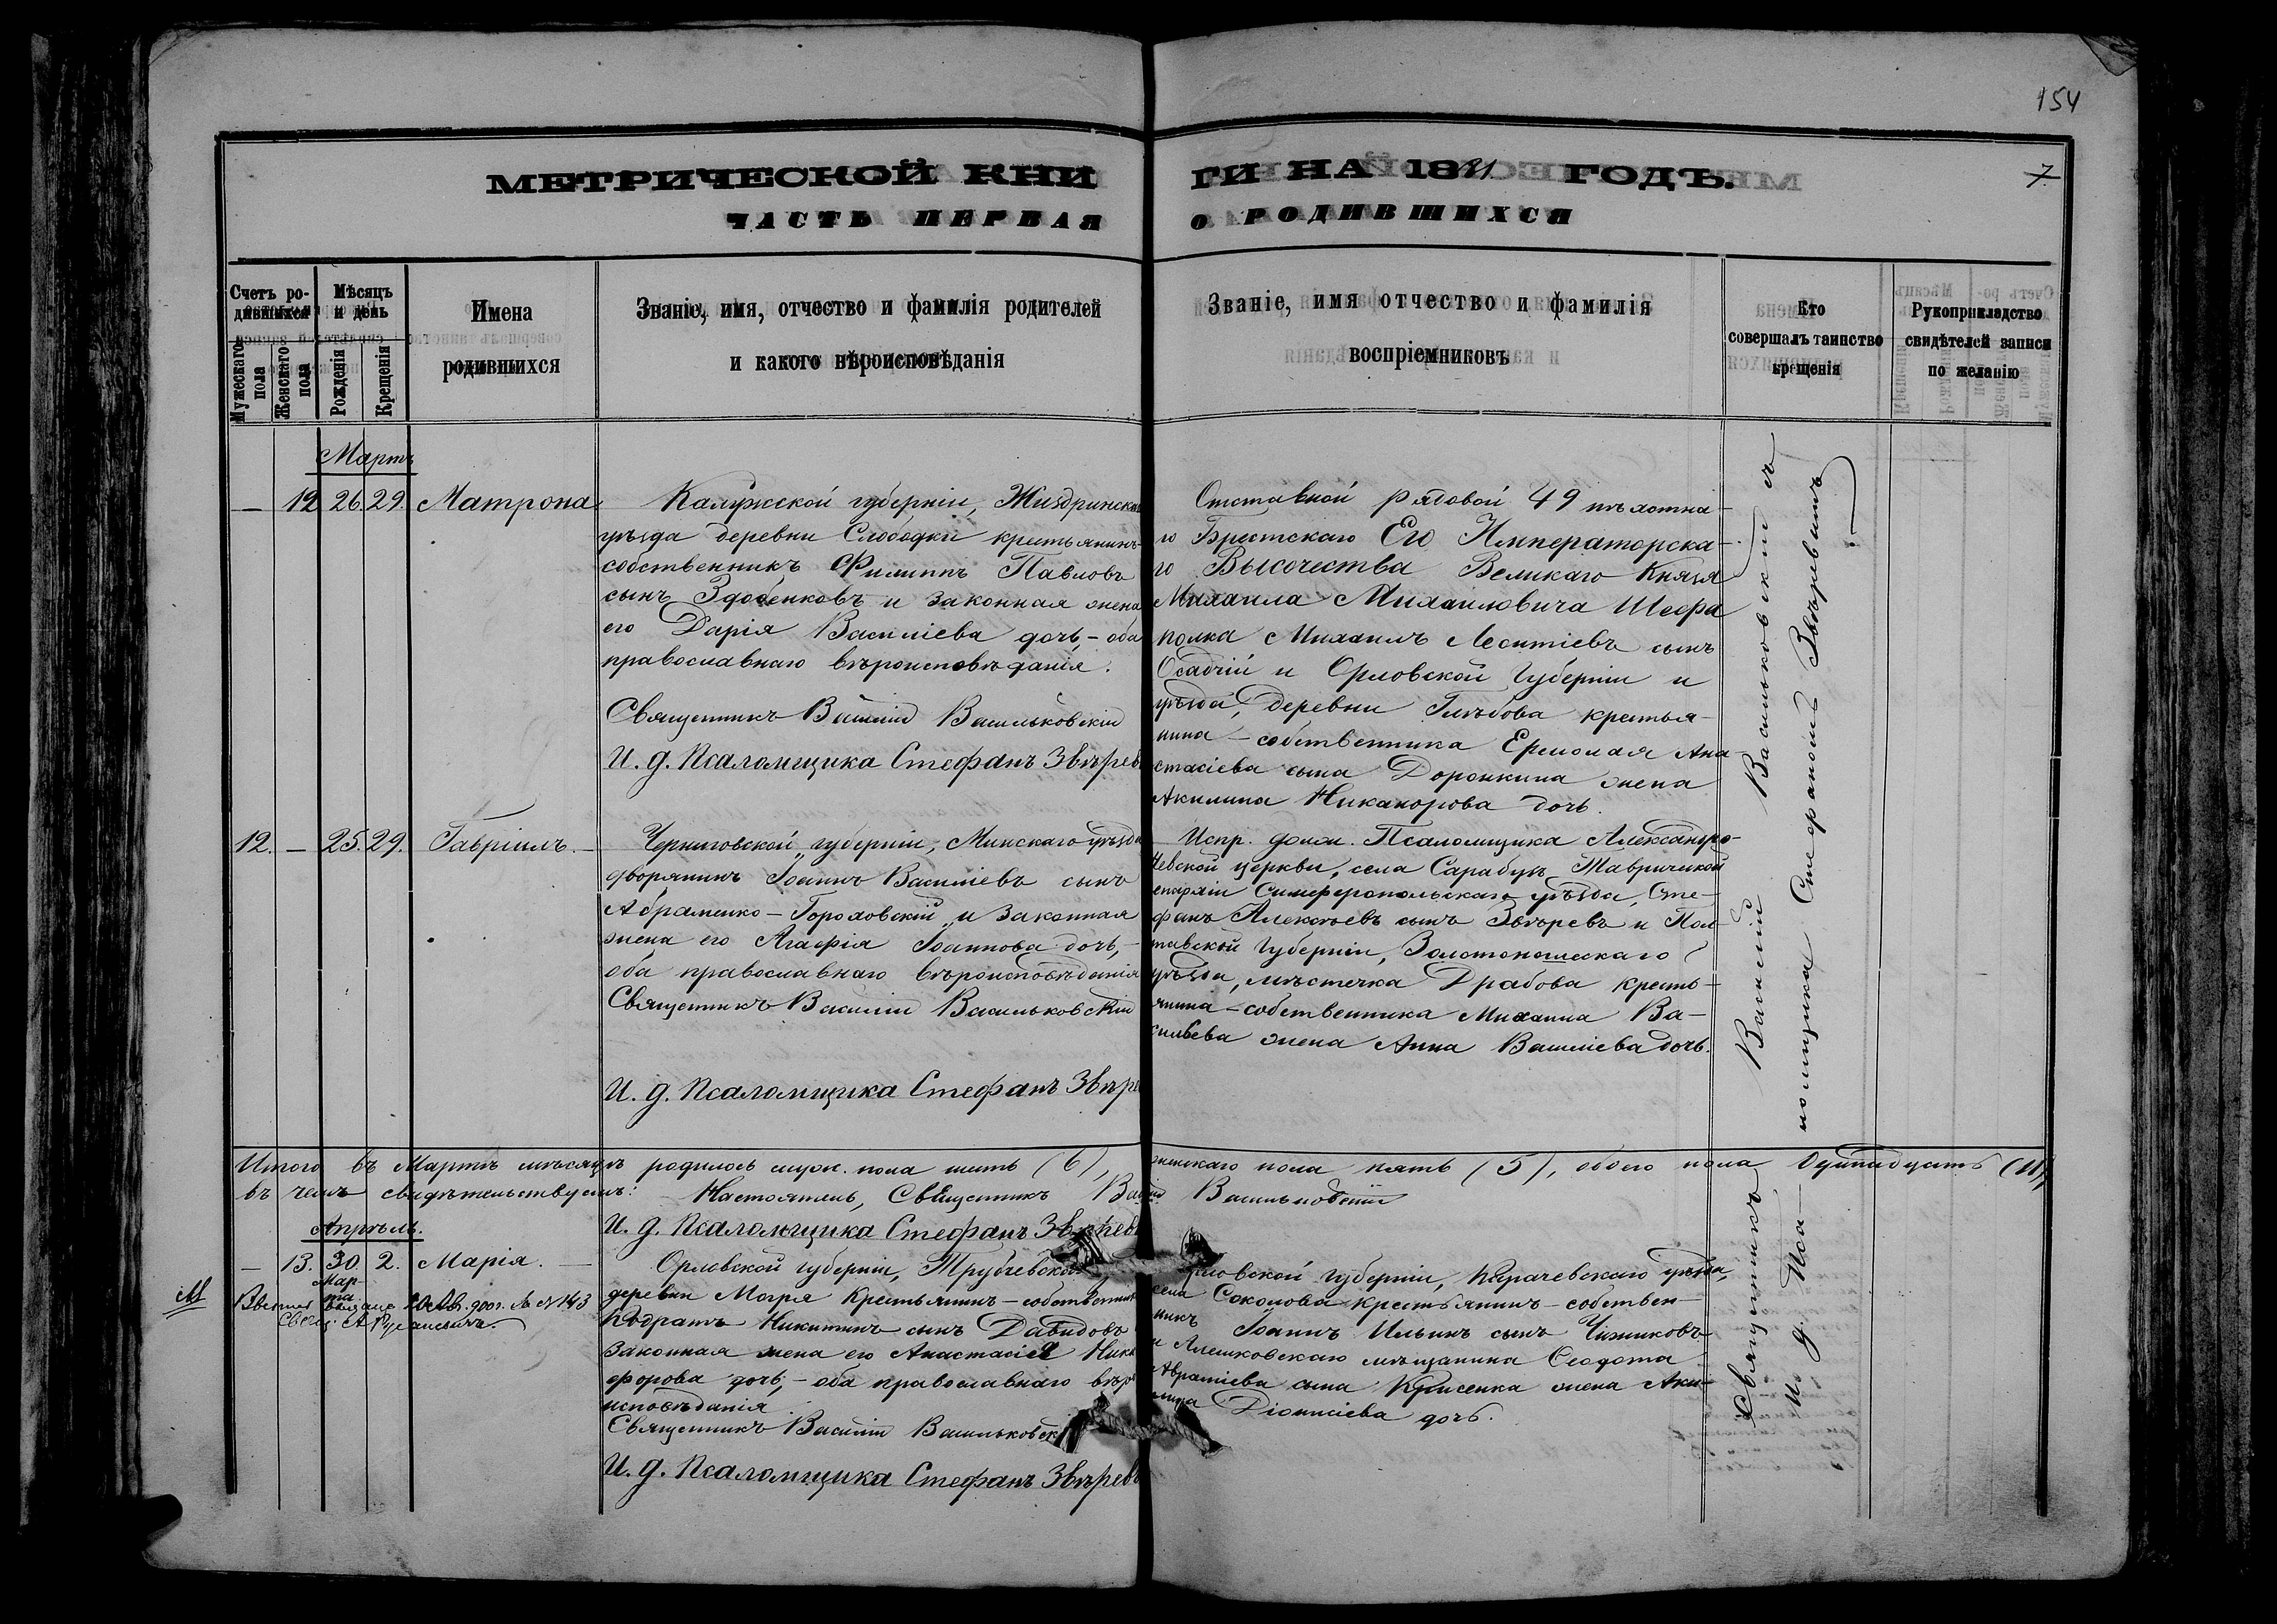 154
МЕТРИЧЕСКОЙ КНИ ГИ НА 1881 ГОДЪ.
7
ЧАСТЬ ПЕРВАЯ О РОДИВШИХСЯ
Счетъ ро-
дившихся
Мужескаго пола
Женскаго пола
Мѣсяцъ
и день
Рожденія
Крещенія
Имена
родившихся
Званіе, имя, отчество и фамилія родителей
и какого вѣроисповѣданія
Званіе, имя отчество и фамилія
воспріемниковъ
Кто
совершалъ таинство
крещенія
Рукоприкладство
свидѣтелей записи
по желанію
Мартъ
— 12 26. 29. Матрона
Калужской губерніи, Жиздринска
уѣзда деревни Слободки крестьянинъ-
собственникъ Филиппъ Павловъ
сынъ Здобенковъ и законная жена
его Дарія Василіева дочь, – оба
православнаго вѣроисповѣданія.
Священникъ Василій Васильковскій
И. д. Псаломщика Стефанъ Звѣревъ
Отставной рядовой 49 пѣхотна-
го Брестскаго Его Императорска-
го Высочества Великаго Князя
Михаила Михаиловича Шефа
полка Михаилъ Леонтіевъ сынъ
Осадчій и Орловской Губерніи и
уѣзда, деревни Глѣбова крестья-
нина – собственника Ермолая Ана-
стасіева сына Доронкина жена
Акилина Никанорова дочь.
12. — 25. 29. Гавріилъ. —
Черниговской губерніи, Минскаго уѣзда
дворянинъ Іоаннъ Василіевъ сынъ
Абраменко – Гороховскій и законная
жена его Агафія Іоаннова дочь, –
оба православнаго вѣроисповѣданія
Священникъ Василій Васильковскій
И. д. Псаломщика Стефанъ Звѣре
Испр. долж. Псаломщика Александро-
Невской церкви, села Сарабузъ Таврической
епархіи Симферопольскаго уѣзда, Сте-
фанъ Алексѣевъ сынъ Звѣревъ и Пол-
тавской Губерніи, Золотоношскаго
уѣзда, мѣстечка Драбова кресть-
янина – собственника Михаила Ва-
сильева жена Анна Василіева дочь.
Священникъ Василій Васильковскій и
И. д. Псаломщика Стефаномъ Звѣревымъ
Итого въ Мартѣ мѣсяцѣ родилось муж. пола шесть (6), женскаго пола пять (5), обоего пола одиннадцать (11),
въ чемъ свидѣтельствуемъ: Настоятель, Священникъ Василій Васильковскій
И. д. Псаломщика Стефанъ Звѣревъ
Апрѣль.
— 13. 30. Мар-та. 2. Марія. —
М
выдано
№ 143
Свящ. А.
Орловской губерніи, Трубчевска
деревни Могря крестьянинъ – собственникъ
Кодратъ Никитинъ сынъ Давидовъ
законная жена его Анастасія Ники
форова дочь, – оба православнаго вѣро
исповѣданія
Священникъ Василій Васильковск
И. д. Псаломщика Стефанъ Звѣревъ
Орловской губерніи, Карачевскаго уѣзда,
села Соколова крестьянинъ – собствен-
никъ Іоаннъ Ильинъ сынъ Чижиковъ
и Алешковскаго мѣщанина Феодота
сына жена Аки-
лина Діонисіева дочь.